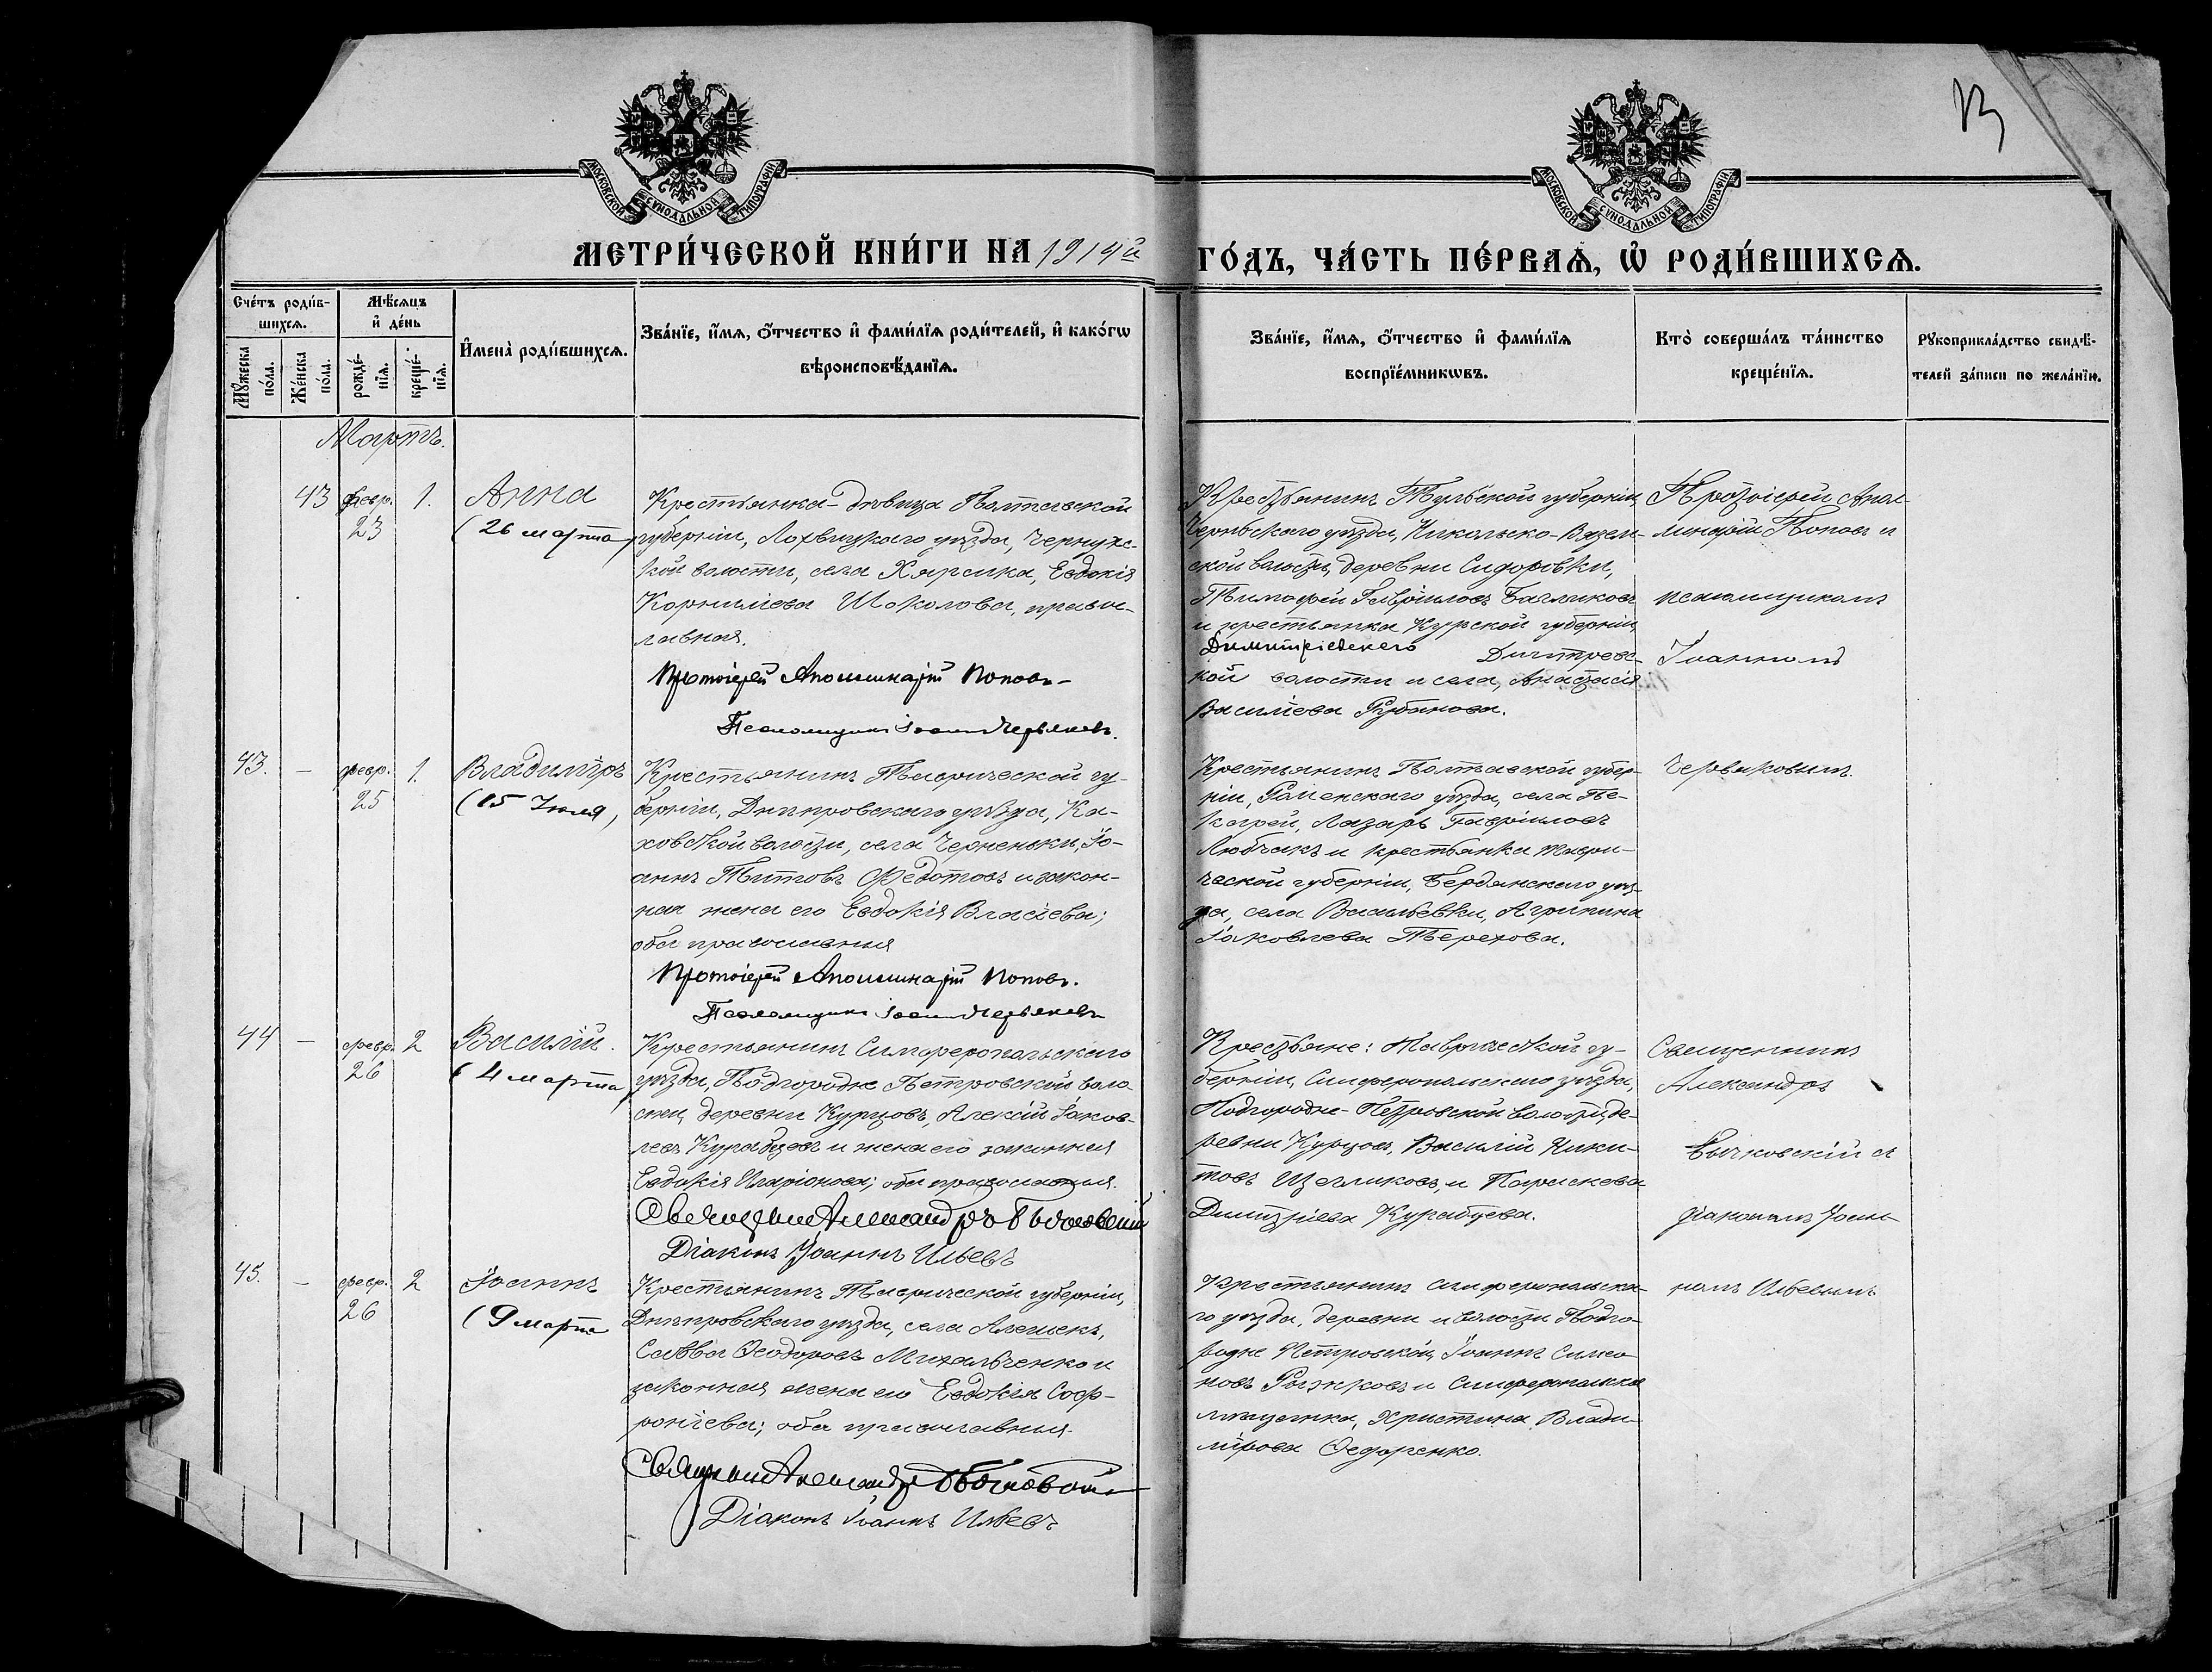 13
МОСКОВСКОЙ СУНОДАЛЬНОЙ ТИПОГРАФІИ
МОСКОВСКОЙ СУНОДАЛЬНОЙ ТИПОГРАФІИ
МЕТРИ́ЧЕСКОЙ КНИ́ГИ НА 1914й ГО́ДЪ, ЧА́СТЬ ПЕ́РВАѦ, Ѡ҆ РОДИ́ВШИХСѦ.
Сче́тъ роди́в-
шихсѧ.
Мꙋ́жеска по́ла.
Же́нска по́ла.
Мѣ́сѧцъ
и҆ де́нь
рожде́-
нїѧ.
креще́-
нїѧ.
И҆мена̀ роди́вшихсѧ.
Зва́нїе, и҆́мѧ, ѻ҆́тчество и҆ фами́лїѧ роди́телей, и҆ како́гѡ
вѣроисповѣ́данїѧ.
Зва́нїе, и҆́мѧ, ѻ҆́тчество и҆ фами́лїѧ
воспрїе́мникѡвъ.
Кто̀ соверша́лъ та́инство
креще́нїѧ.
Рꙋкоприкла́дство свидѣ́-
телей за́писи по жела́нїю.
Мартъ.
43 февр. 23 1. Анна
(26 марта)
Крестьянка-дѣвица Полтавской
губерніи, Лохвицкаго уѣзда, Чернухс-
кой волости, села Харсика, Евдокія
Корниліева Шоколова, правос-
лавная.
Протоіерей Аполлинарій Поповъ
Псаломщикъ Іоаннъ Червяковъ.
Крестьянинъ Тульской губерніи,
Чернскаго уѣзда, Никольско-Вязем-
ской волости, деревни Сидоровки,
Тимофей Гавріиловъ
и крестьянка Курской губерніи,
Димитріевскаго Дмитревс-
кой волости и села, Анастасія
Василіева Рубанова.
Протоіерей Апол-
линарій Поповъ и
псаломщикомъ
Іоанномъ
43. — февр. 25 1. Владиміръ
(15 Іюля)
Крестьянинъ Таврической гу-
берніи, Днѣпровскаго уѣзда, Ка-
ховской волости, села Черненьки, Іо-
аннъ Титовъ Федотовъ и закон-
ная жена его Евдокія Власіева;
оба православныя
Протоіерей Аполлинарій Поповъ.
Псаломщикъ Іоаннъ Червяковъ
Крестьянинъ Полтавской губер-
ніи, Роменскаго уѣзда, села Пе-
карей, Лазарь Гавріиловъ
Любчакъ и крестьянка Таври-
ческой губерніи, Бердянскаго уѣз-
да, села Васильевки, Агрипина
Іаковлева Терехова.
Червяковымъ.
44 — февр. 26 2 Василій.
(4 марта)
Крестьянинъ Симферопольскаго
уѣзда, Подгородне Петровской воло-
сти, деревни Курцовъ, Алексій Іаков-
левъ Курабцевъ и жена его законная
Евдокія Иларіонова; оба православныя.
Священникъ Александръ Бычковскій
Діаконъ Іоаннъ Ильевъ
Крестьяне: Таврической гу-
берніи, Симферопольскаго уѣзда,
Подгородне-Петровской волости, де-
ревни Курцовъ, Василій Ники-
товъ Щегликовъ, и Параскева
Димитріева Курабцева.
Священникъ
Александръ
Бычковскій съ
діакономъ Іоан-
45. — февр. 26 2 Іоаннъ
(9 марта
Крестьянинъ Таврической губерніи,
Днѣпровскаго уѣзда, села Алешекъ,
Савва Ѳеодоровъ Михальченко и
законная жена его Евдокія Соф-
роніева; оба православныя.
Священникъ Александръ Бычковскій
Діаконъ Іоаннъ Ильевъ
Крестьянинъ Симферопольска-
го уѣзда, деревни и волости Подго-
родне Петровской, Іоаннъ Симео-
новъ Рыжковъ и Симферопольская
мѣщанка, Христина Влади-
мірова Ѳедоренко.
номъ Ильевымъ